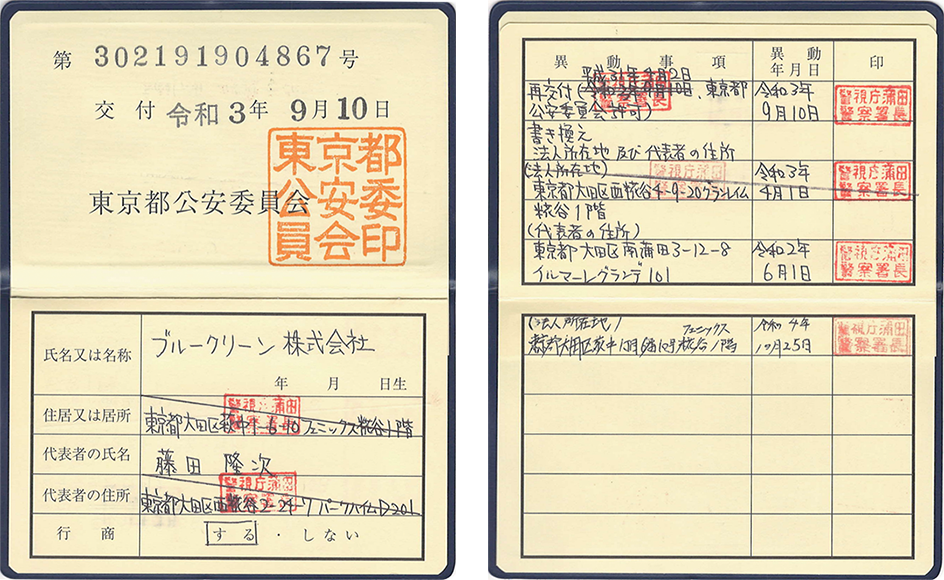 第 302191904867 号
交付 令和 3年 9月 10日
東京都公安委員会
東京都
公安委
員会印
氏名又は名称 ブルークリーン 株式会社
年 月 日生
住居又は居所 東京都大田区萩中1-6-10フェニックス糀谷1階
警視庁蒲田
警察署長
代表者の氏名 藤田 隆次
代表者の住所 東京都大田区西糀谷2-24-7 パークハイムD201
警視庁蒲田
警察署長
行商 する ・ しない
異動事項 異動年月日 印
平成31年4月2日
再交付(令和3年9月10日、東京都 令和3年
公安委員会許可) 9月10日
警視庁蒲田
警察署長
書き換え
法人所在地 及び 代表者の住所
(法人所在地) 令和3年
東京都大田区西糀谷4-9-20グランレイム 4月1日
警視庁蒲田
警察署長
糀谷1階
(代表者の住所)
東京都大田区南蒲田3-12-8 令和2年
イルマーレグランデ101 6月1日
警視庁蒲田
警察署長
(法人所在地) フェニックス 令和4年
東京都大田区萩中1丁目6番10号糀谷1階 10月25日
警視庁蒲田
警察署長